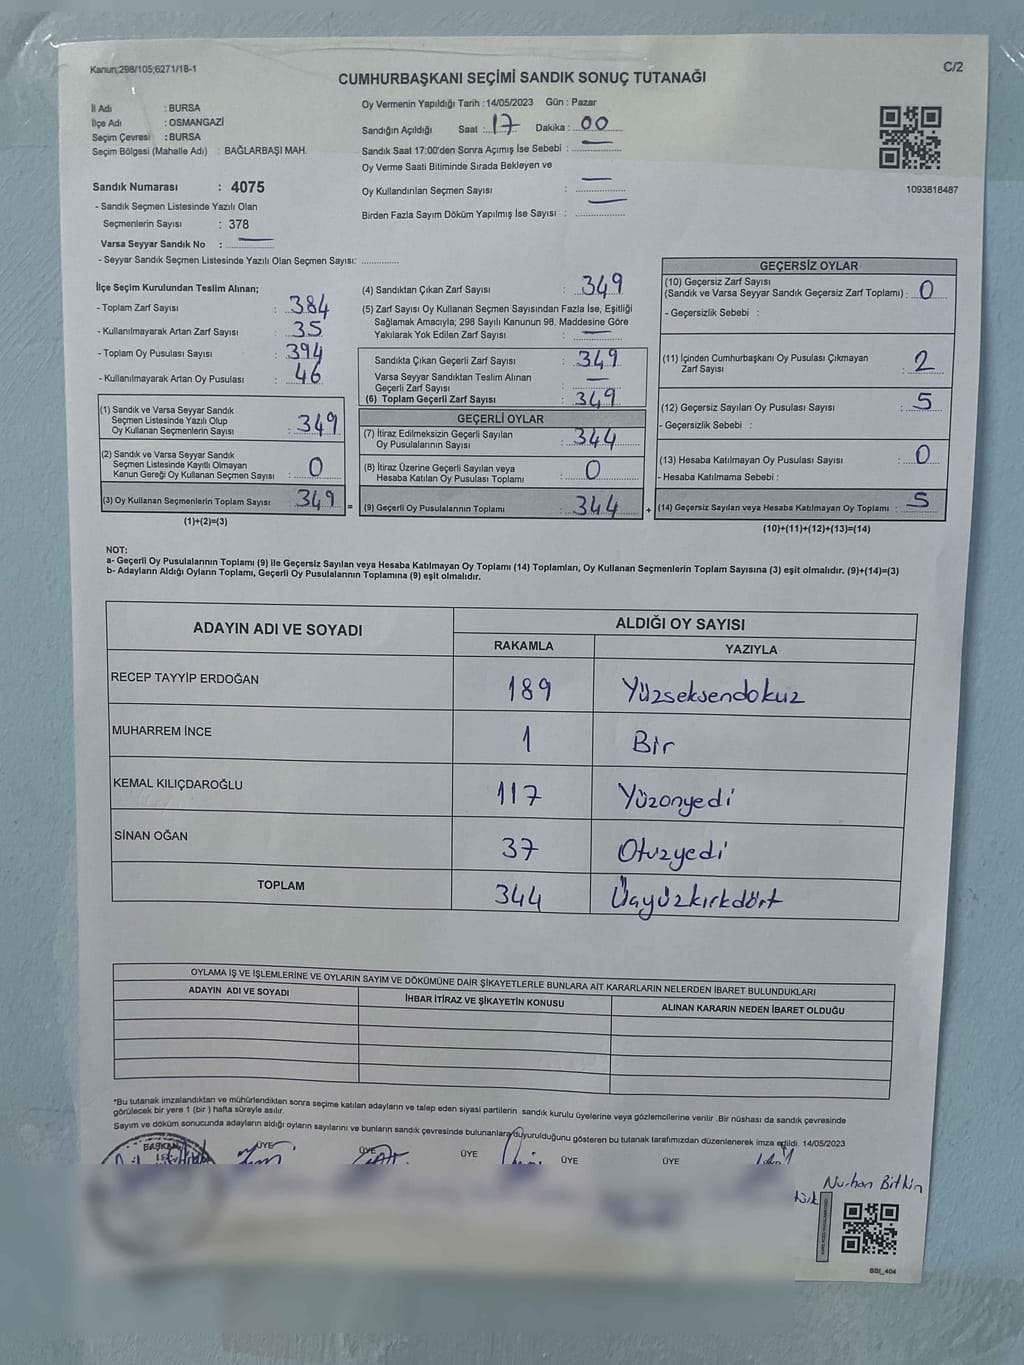 Kanun;298/105;6271/18-1
C/2
CUMHURBAŞKANI SEÇİMİ SANDIK SONUÇ TUTANAĞI
İl Adı : BURSA
İlçe Adı : OSMANGAZİ
Seçim Çevresi : BURSA
Seçim Bölgesi (Mahalle Adı) : BAĞLARBAŞI MAH.
Oy Vermenin Yapıldığı Tarih : 14/05/2023 Gün : Pazar
Sandığın Açıldığı Saat : 17 Dakika : 00
Sandık Saat 17:00'den Sonra Açımış İse Sebebi :
Oy Verme Saati Bitiminde Sırada Bekleyen ve
Oy Kullandırılan Seçmen Sayısı :
Birden Fazla Sayım Döküm Yapılmış İse Sayısı :
1093818487
Sandık Numarası : 4075
- Sandık Seçmen Listesinde Yazılı Olan
Seçmenlerin Sayısı : 378
Varsa Seyyar Sandık No :
- Seyyar Sandık Seçmen Listesinde Yazılı Olan Seçmen Sayısı:
İlçe Seçim Kurulundan Teslim Alınan;
- Toplam Zarf Sayısı : 384
- Kullanılmayarak Artan Zarf Sayısı : 35
- Toplam Oy Pusulası Sayısı : 394
- Kullanılmayarak Artan Oy Pusulası : 46
(1) Sandık ve Varsa Seyyar Sandık
Seçmen Listesinde Yazılı Olup
Oy Kullanan Seçmenlerin Sayısı : 349
(2) Sandık ve Varsa Seyyar Sandık
Seçmen Listesinde Kayıtlı Olmayan
Kanun Gereği Oy Kullanan Seçmen Sayısı : 0
(3) Oy Kullanan Seçmenlerin Toplam Sayısı : 349
(1)+(2)=(3)
(4) Sandıktan Çıkan Zarf Sayısı : 349
(5) Zarf Sayısı Oy Kullanan Seçmen Sayısından Fazla İse, Eşitliği
Sağlamak Amacıyla; 298 Sayılı Kanunun 98. Maddesine Göre
Yakılarak Yok Edilen Zarf Sayısı :
Sandıkta Çıkan Geçerli Zarf Sayısı : 349
Varsa Seyyar Sandıktan Teslim Alınan
Geçerli Zarf Sayısı :
(6) Toplam Geçerli Zarf Sayısı : 349
GEÇERLİ OYLAR
(7) İtiraz Edilmeksizin Geçerli Sayılan
Oy Pusulalarının Sayısı : 344
(8) İtiraz Üzerine Geçerli Sayılan veya
Hesaba Katılan Oy Pusulası Toplamı : 0
(9) Geçerli Oy Pusulalarının Toplamı : 344
=
+
GEÇERSİZ OYLAR
(10) Geçersiz Zarf Sayısı
(Sandık ve Varsa Seyyar Sandık Geçersiz Zarf Toplamı) : 0
- Geçersizlik Sebebi :
(11) İçinden Cumhurbaşkanı Oy Pusulası Çıkmayan
Zarf Sayısı : 2
(12) Geçersiz Sayılan Oy Pusulası Sayısı : 5
- Geçersizlik Sebebi :
(13) Hesaba Katılmayan Oy Pusulası Sayısı : 0
- Hesaba Katılmama Sebebi :
(14) Geçersiz Sayılan veya Hesaba Katılmayan Oy Toplamı : 5
(10)+(11)+(12)+(13)=(14)
NOT:
a- Geçerli Oy Pusulalarının Toplamı (9) ile Geçersiz Sayılan veya Hesaba Katılmayan Oy Toplamı (14) Toplamları, Oy Kullanan Seçmenlerin Toplam Sayısına (3) eşit olmalıdır. (9)+(14)=(3)
b- Adayların Aldığı Oyların Toplamı, Geçerli Oy Pusulalarının Toplamına (9) eşit olmalıdır.
ADAYIN ADI VE SOYADI ALDIĞI OY SAYISI
RAKAMLA YAZIYLA
RECEP TAYYİP ERDOĞAN 189 Yüzseksendokuz
MUHARREM İNCE 1 Bir
KEMAL KILIÇDAROĞLU 117 Yüzonyedi
SİNAN OĞAN 37 Otuzyedi
TOPLAM 344 Üçyüzkırkdört
OYLAMA İŞ VE İŞLEMLERİNE VE OYLARIN SAYIM VE DÖKÜMÜNE DAİR ŞİKAYETLERLE BUNLARA AİT KARARLARIN NELERDEN İBARET BULUNDUKLARI
ADAYIN ADI VE SOYADI İHBAR İTİRAZ VE ŞİKAYETİN KONUSU ALINAN KARARIN NEDEN İBARET OLDUĞU
*Bu tutanak imzalandıktan ve mühürlendikten sonra seçime katılan adayların ve talep eden siyasi partilerin sandık kurulu üyelerine veya gözlemcilerine verilir .Bir nüshası da sandık çevresinde
görülecek bir yere 1 (bir ) hafta süreyle asılır.
Sayım ve döküm sonucunda adayların aldığı oyların sayılarını ve bunların sandık çevresinde bulunanlara duyurulduğunu gösteren bu tutanak tarafımızdan düzenlenerek imza edildi. 14/05/2023
BAŞKAN ÜYE ÜYE ÜYE ÜYE ÜYE
Nurhan Bitkin
BSI_404